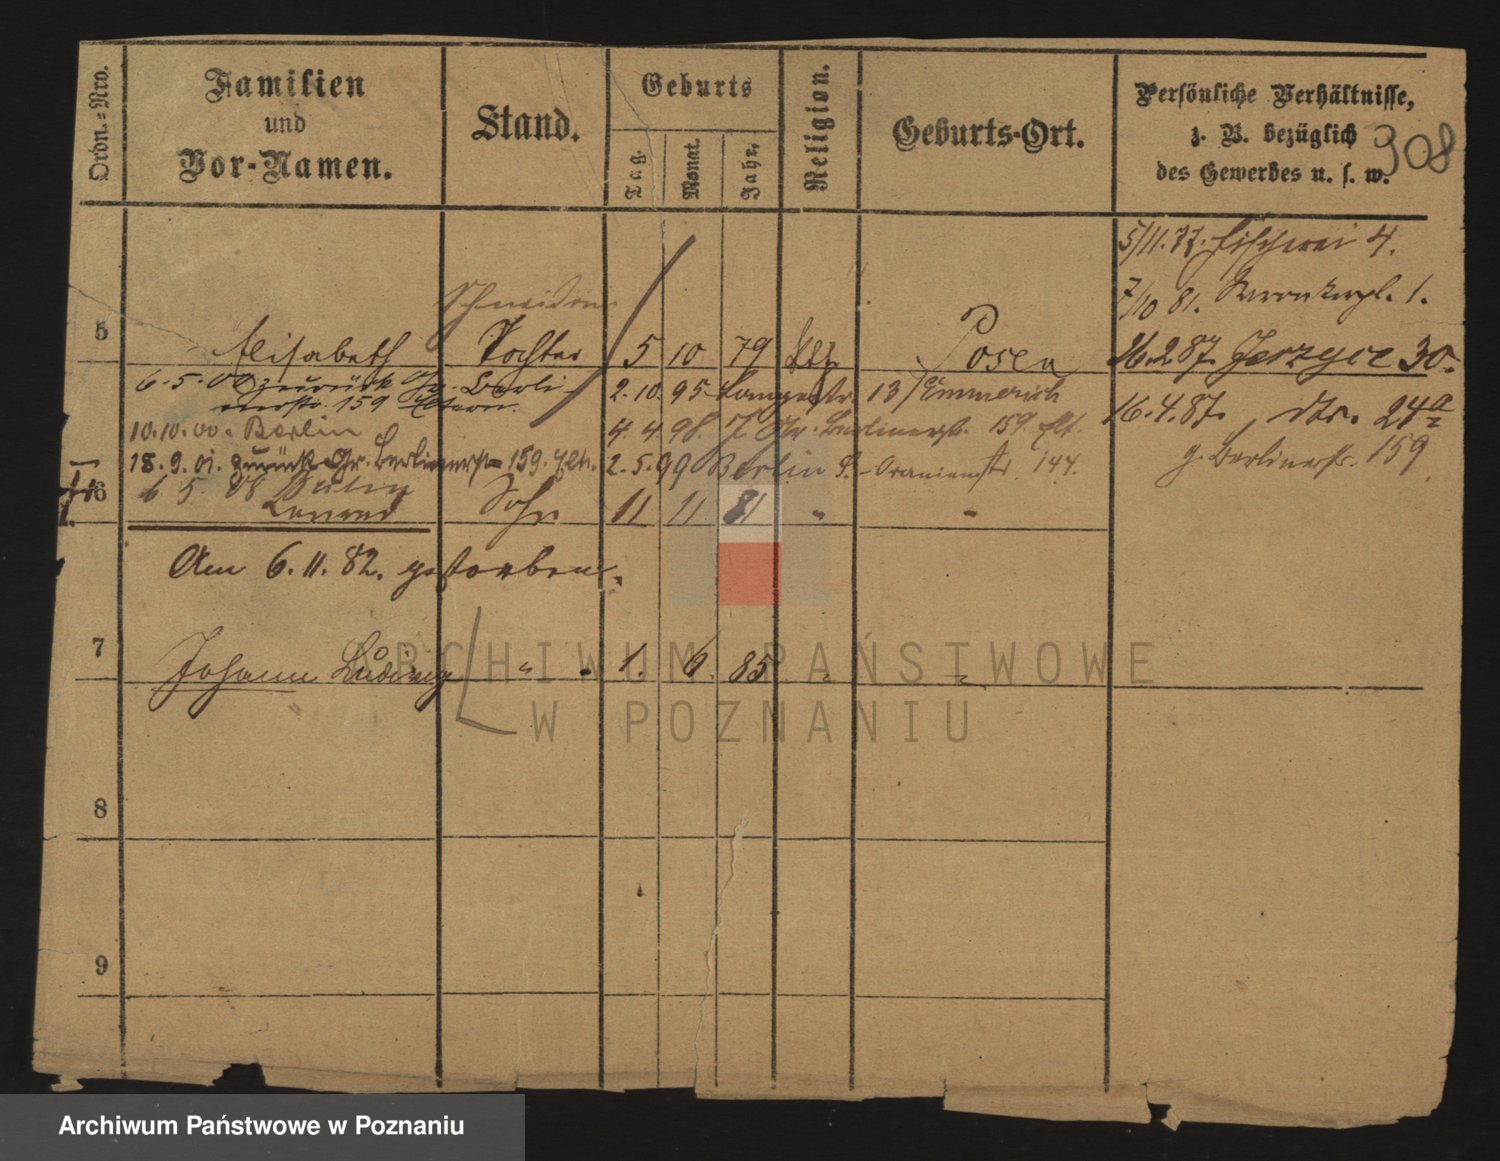 Ordn.-Nro.
Familien
und
Vor-Namen.
Stand.
Geburts
Tag.
Monat.
Jahr.
Religion.
Geburts-Ort.
Persönliche Verhältnisse,
z. B. bezüglich
des Gewerbes u. s. w.
308
5/11. 77. Fischerei 4.
7/10 81. 1.
5 Elisabeth Tochter 5 10 79 Posen
26.2.87. Jerzyce 30.
6.5.00 zurück Gr. Berli-
nerstr. 159 Eltern.
2.10.95 Langestr. 13/Emmerich
16.4.87. dto. 24a
10.10.00. Berlin
4.4.98. Gr. Berlinerstr. 159. Elt.
18.9.01. zurück Gr. Berlinerstr. 159. Elt.
2.5.99 Berlin S. Oranienstr. 144.
g. Berlinerstr. 159
6 5. 08
6 Sohn 11 11 81 " "
Am 6.11.82. gestorben.
7 Johann Ludwig " 1. 6. 85 " "
8
9
ARCHIWUM PAŃSTWOWE
W POZNANIU
Archiwum Państwowe w Poznaniu